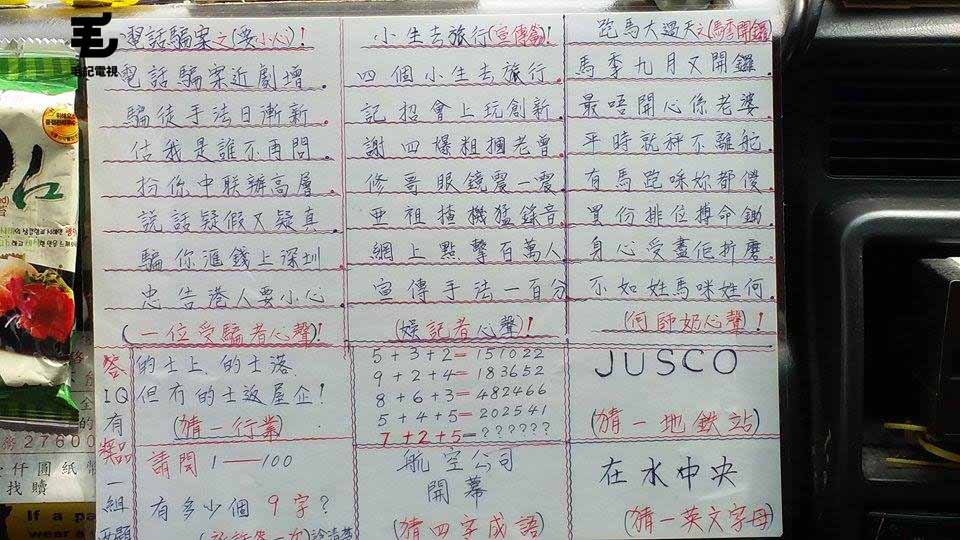 毛
毛記電視
電話騙案之(要小心)!
電話騙案近劇增.
騙徒手法日漸新.
估我是誰不再問.
扮你中联辦高層.
說話疑假又疑真.
騙你滙錢上深圳.
忠告港人要小心.
(一位受騙者心聲)!
小生去旅行(宣傳篇)!
四個小生去旅行.
記招會上玩創新.
謝四爆粗摑老曾.
修哥眼鏡震一震.
亜祖揸機猛錄音.
網上點擊百萬人.
宣傳手法一百分
(娛記者心聲)!
跑馬大過天之(馬季開鑼)
馬季九月又開鑼.
最唔開心係老婆.
平時就秤不離舵.
有馬跑咪妳都傻.
買份排位搏命鋤.
身心受盡佢折磨.
不如姓馬咪姓何.
(何師奶心聲)!
答IQ有獎品一組
的士上.的士落.
但冇的士返屋企!
(猜一行業)
5+3+2=151022
9+2+4=183652
8+6+3=482466
5+4+5=202541
7+2+5=??????
JUSCO
(猜一地鉄站)
請問1—100
有多少個9字?
航空公司
開幕
(猜四字成語)
在水中央
(猜一英文字母)
27600
仟圓紙幣
找贖
If a pa